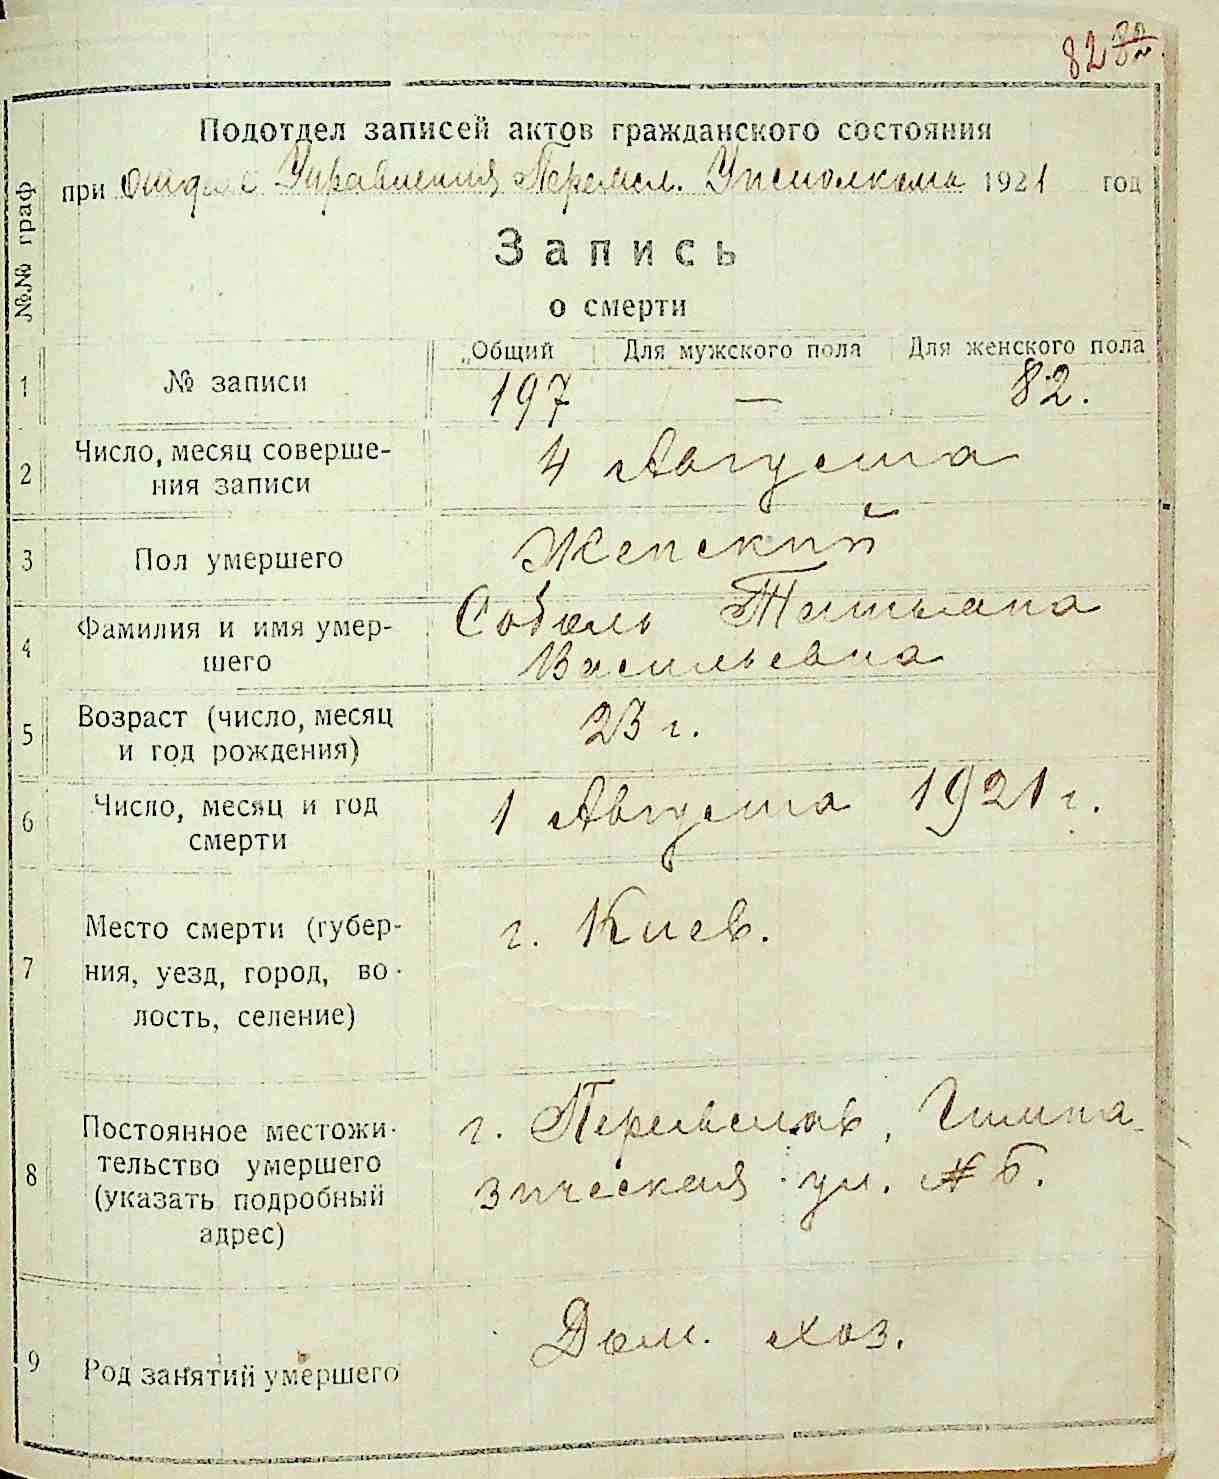 82
Подотдел записей актов гражданского состояния
при Отделе Управления Переясл. Уисполкома 1921 год
№№ граф
Запись
о смерти
Общий Для мужского пола Для женского пола
1 № записи 197 — 82.
2 Число, месяц соверше-
ния записи 4 Августа
3 Пол умершего Женский
4 Фамилия и имя умер-
шего Соболь Татьяна
Васильевна
5 Возраст (число, месяц
и год рождения) 23 г.
6 Число, месяц и год
смерти 1 Августа 1921 г.
7 Место смерти (губер-
ния, уезд, город, во-
лость, селение) г. Киев.
8 Постоянное местожи-
тельство умершего
(указать подробный
адрес) г. Переяслав, Гимна-
зическая ул. № 6.
9 Род занятий умершего Дом. хоз.